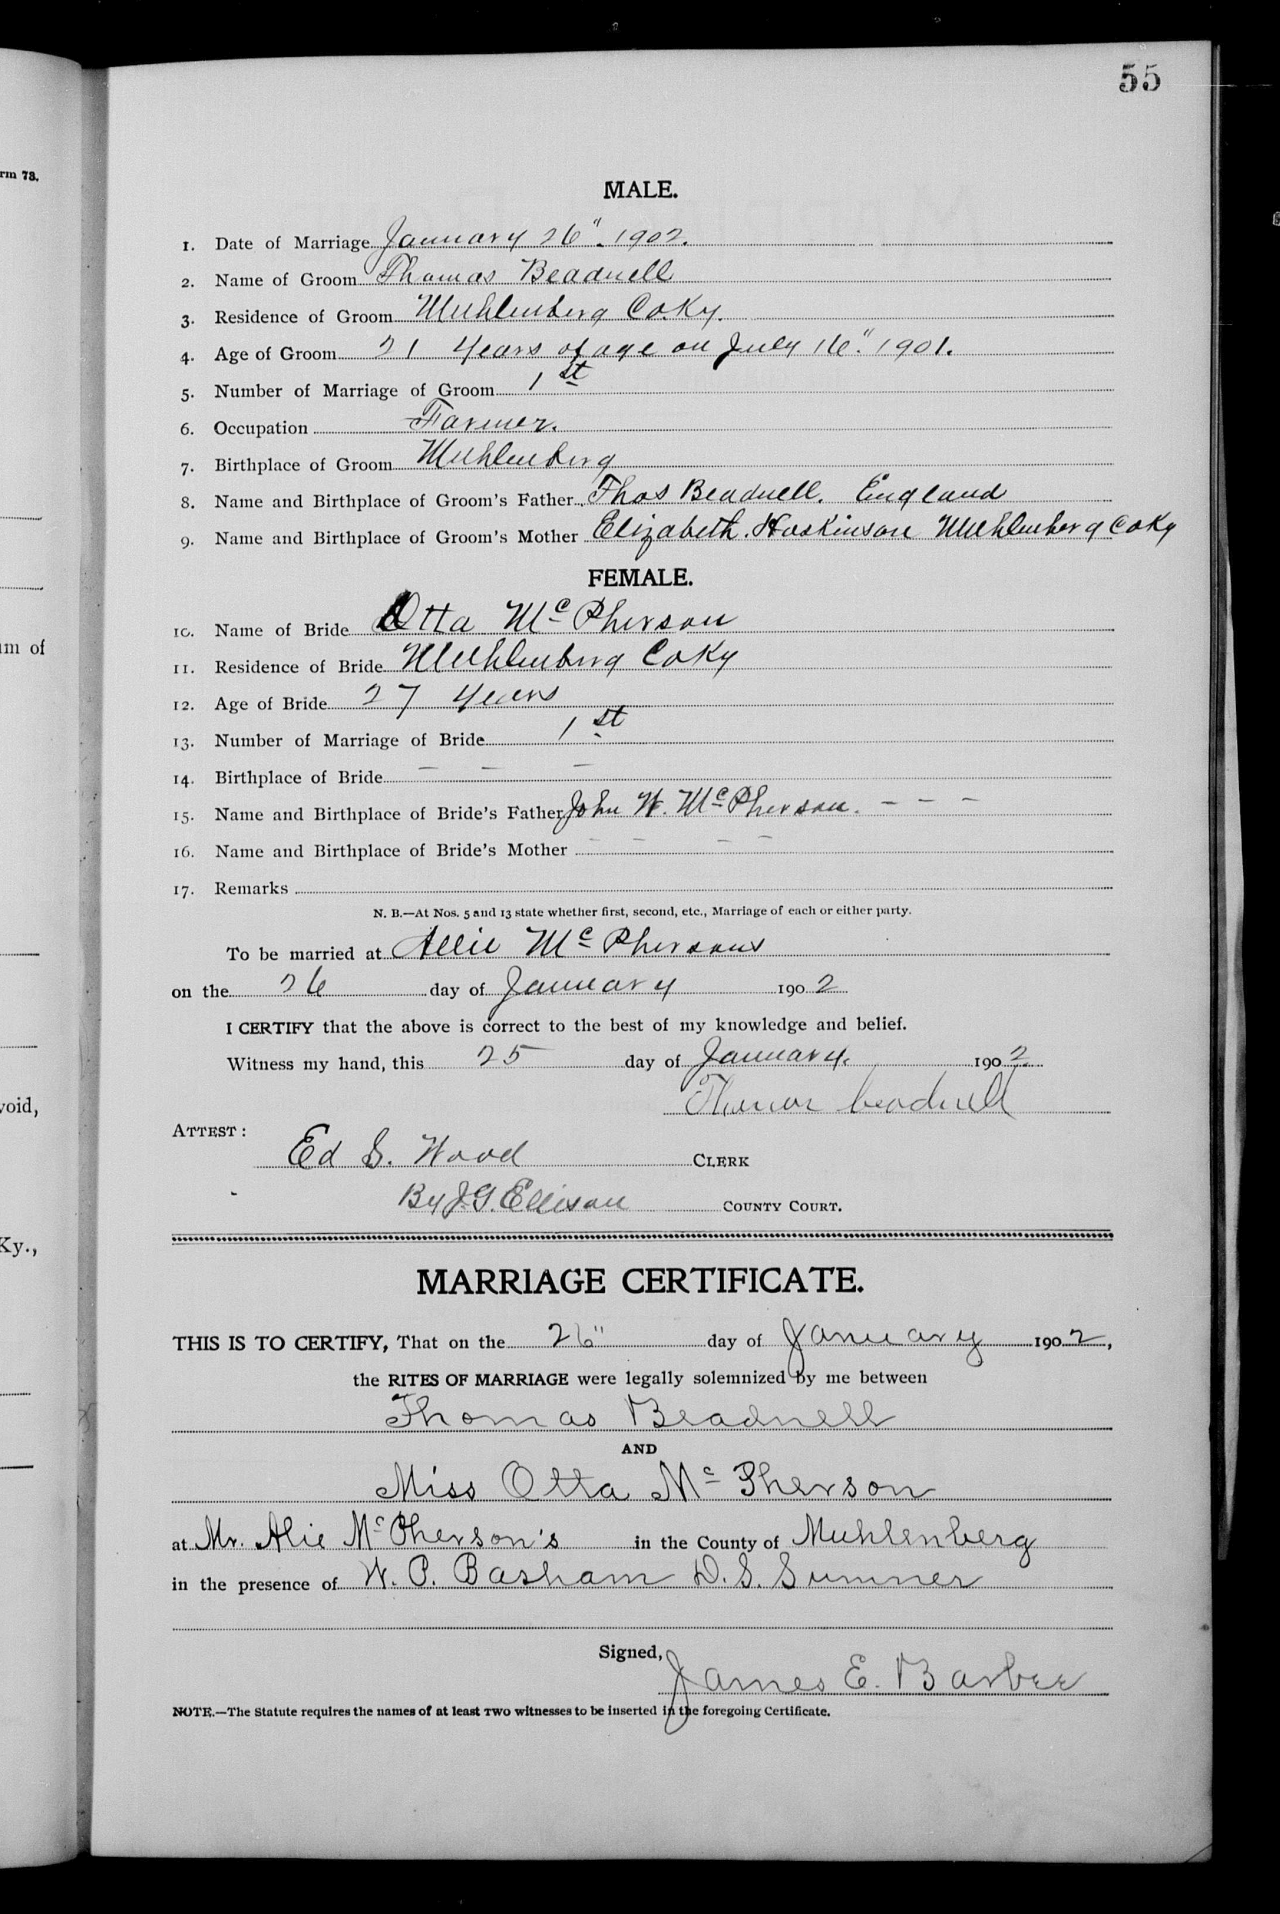 55
rm 73.
MALE.
1. Date of Marriage January 26". 1902.
2. Name of Groom Thomas Beadnell
3. Residence of Groom Muhlenberg Co Ky.
4. Age of Groom 21 years of age on July 16". 1901.
5. Number of Marriage of Groom 1st
6. Occupation Farmer.
7. Birthplace of Groom Muhlenberg
8. Name and Birthplace of Groom's Father Thos Beadnell. England
9. Name and Birthplace of Groom's Mother Elizabeth. Hoskinson Muhlenberg Co Ky
FEMALE.
10. Name of Bride Otta McPherson
um of
11. Residence of Bride Muhlenberg Co Ky
12. Age of Bride 27 years
13. Number of Marriage of Bride 1st
14. Birthplace of Bride – – –
15. Name and Birthplace of Bride's Father John W. McPherson. – – –
16. Name and Birthplace of Bride's Mother – – – –
17. Remarks
N. B.—At Nos. 5 and 13 state whether first, second, etc., Marriage of each or either party.
To be married at Allie McPhersons
on the 26 day of January 1902
I CERTIFY that the above is correct to the best of my knowledge and belief.
Witness my hand, this 25 day of January. 1902
void,
Thomas Beadnell
ATTEST:
Ed S. Wood CLERK
By J. G. Ellison COUNTY COURT.
Ky.,
MARRIAGE CERTIFICATE.
THIS IS TO CERTIFY, That on the 26" day of January 1902,
the RITES OF MARRIAGE were legally solemnized by me between
Thomas Beadnell
AND
Miss Otta McPherson
at Mr. Alie McPherson's in the County of Muhlenberg
in the presence of W. P. Basham D. S. Sumner
Signed, James E. Barbee
NOTE.—The Statute requires the names of at least TWO witnesses to be inserted in the foregoing Certificate.